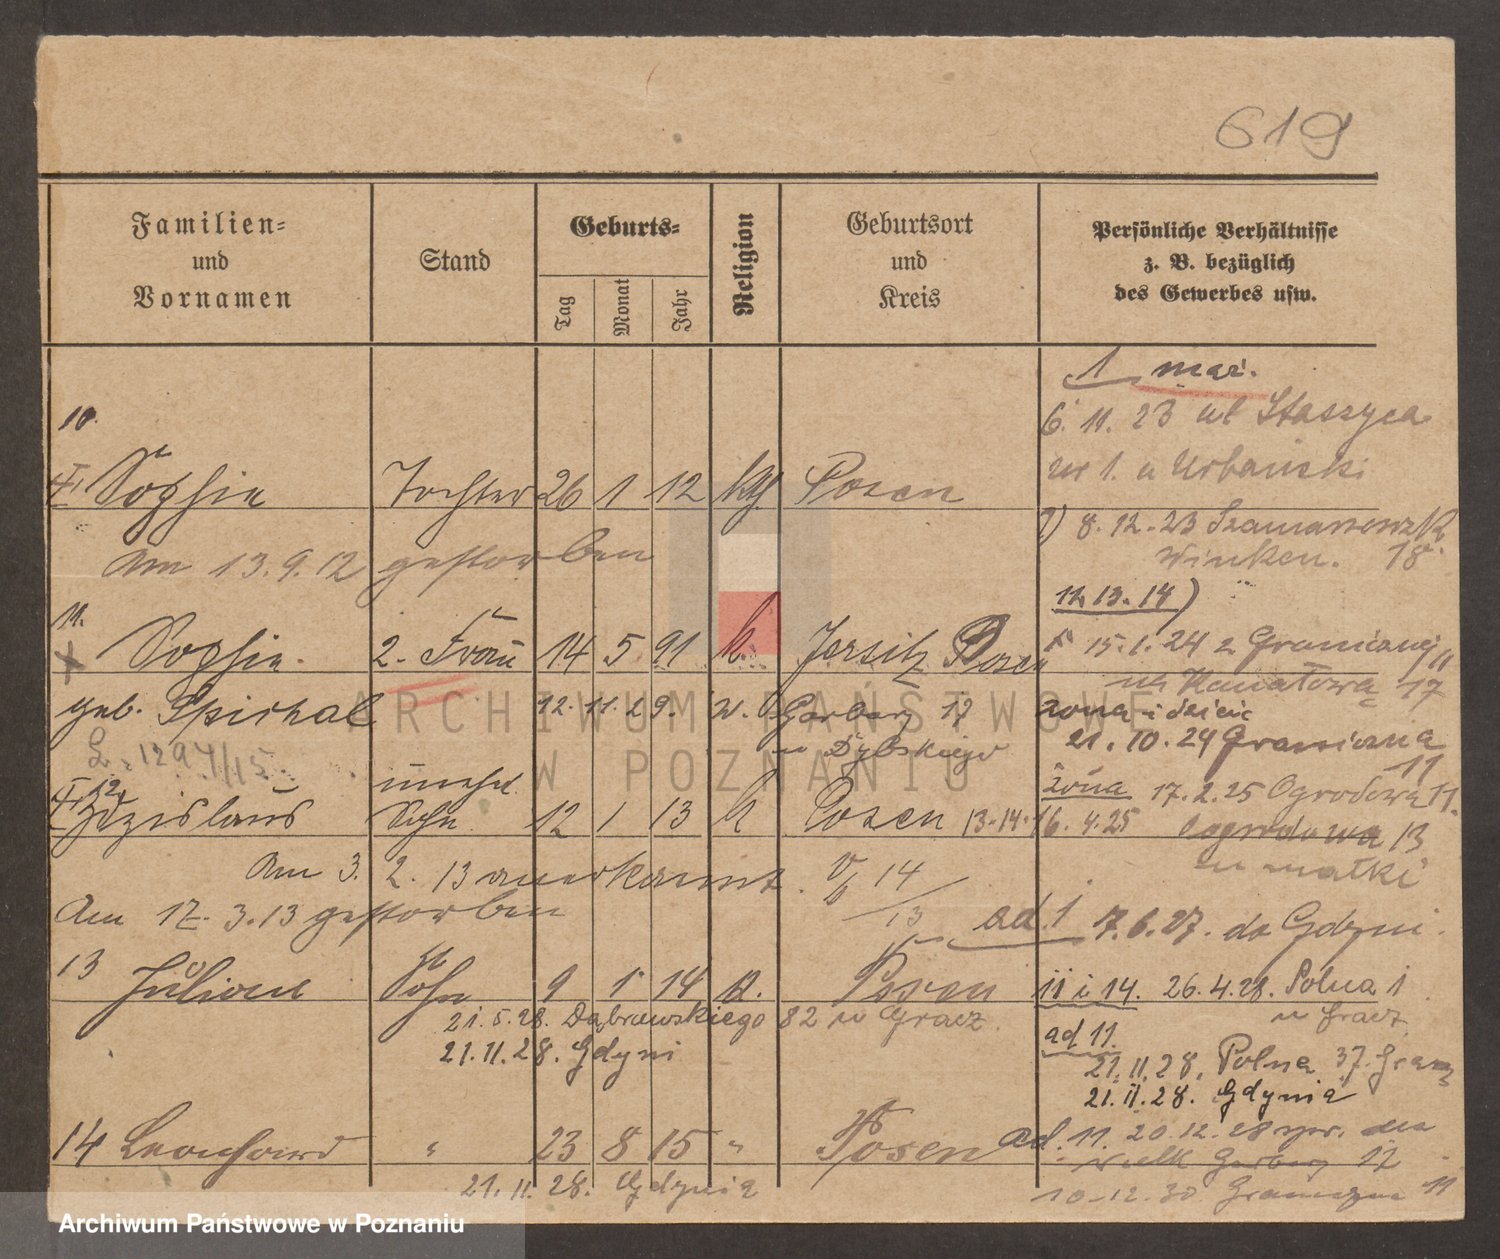 619
Familien=
und
Vornamen
Stand
Geburts=
Tag
Monat
Jahr
Religion
Geburtsort
und
Kreis
Persönliche Verhältnisse
z. B. bezüglich
des Gewerbes usw.
1 mąż.
6. 11. 23 ul Staszyca
nr 1. u Urbański
10.
Sophie Tochter 26 1 12 kth Posen
8. 12. 23
18
Am 13.9.12 gestorben
12. 13. 14)
11.
Sophie 2. Frau 14 5 91 k. Jersitz Posen
15.1.24 z Granicznej
na Kanałową 17
geb. 12. 11. 29. w. Garbary 17
żona i dzieci
u Dybskiego
21. 10. 24 Graniczna
11
1294/15
12
Zdzislaus unehel.
Sohn 12 1 13 k Posen 13-14-16. 4. 25
żona 17. 2. 25 Ogrodowa 11.
Ogrodowa 13
u matki
Am 3. 2. 13 anerkannt.
14
13
Am 17. 3. 13 gestorben
ad. 1 7. 6. 27. do Gdyni.
13 Julian Sohn 9 1 14 k. Posen
11 i 14. 26. 4. 28. Polna 1
u Gracz
21. 5. 28. Dąbrowskiego 82 u Gracz.
ad 11.
21. 11. 28. Gdyni
21. 11. 28. Polna 37.
21. 11. 28. Gdynia
14 Leonhard " 23 8 15 " Posen
ad. 11. 20. 12. 28
Garbary 17
21. 11. 28. Gdynia
10-12. 30 Graniczna 11
ARCHIWUM PAŃSTWOWE
W POZNANIU
Archiwum Państwowe w Poznaniu